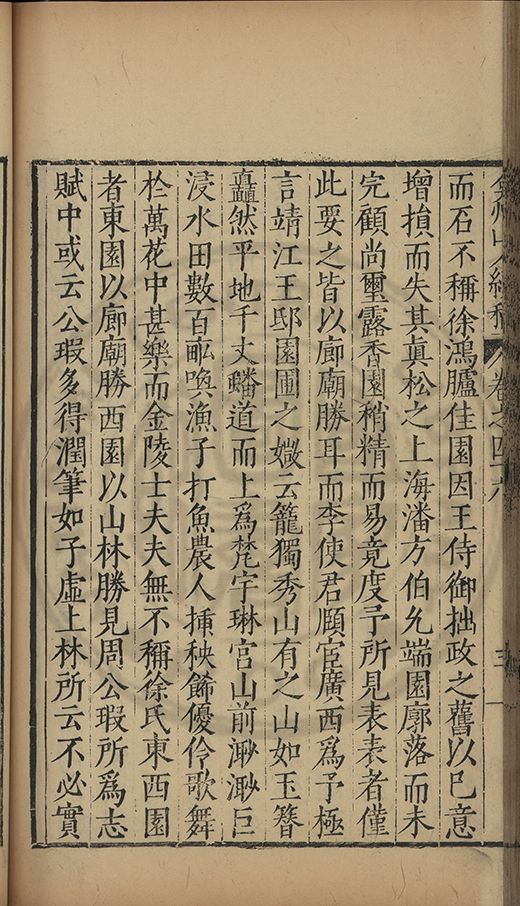 弇州山人續稿 卷之四六 三
而石不稱徐鴻臚佳園因王侍御拙政之舊以己意
增損而失其眞松之上海潘方伯允端園廓落而未
完顧尚璽露香園稍精而易竟度予所見表表者僅
此要之皆以廊廟勝耳而李使君頤宦廣西爲予極
言靖江王邸園圃之媺云籠獨秀山有之山如玉簪
矗然平地千丈蟠道而上爲梵宇琳宮山前渺渺巨
浸水田數百畝喚漁子打魚農人挿秧飾優伶歌舞
於萬花中甚樂而金陵士夫夫無不稱徐氏東西園
者東園以廊廟勝西園以山林勝見周公瑕所爲志
賦中或云公瑕多得潤筆如子虛上林所云不必實